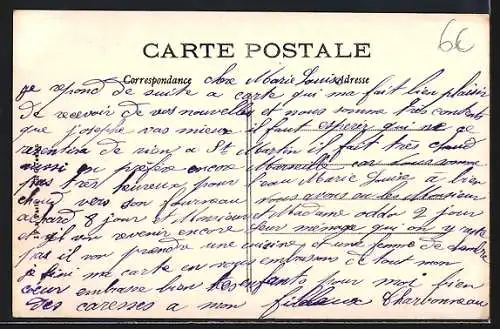 6€
CARTE POSTALE
Correspondance
Adresse
chere Marie Louise
je repond de suite a carte qui ma fait bien plaisir
de recevoir de vos nouvelles et nous somme très contents
que josephe vas mieux il faut esperez qui ne ce
resentira de rien a St Martin il fait très chaud
aussi on préfère encore Marseille car nous somme
pas très heureux pour l'eau Marie Louise a bien
chaud vers son fourneau nous avons eu les Monsieur
8 jour et Monsieur et Madame oddon 2 jour
et il von revenir encore leur menage qui on y reste
pas il von prendre une cuisine et une femme de
je fini ma carte en vous embrasan de tout mon
coeur embrase bien les enfants pour moi bien
des caresses a mon filleux Charbonneau